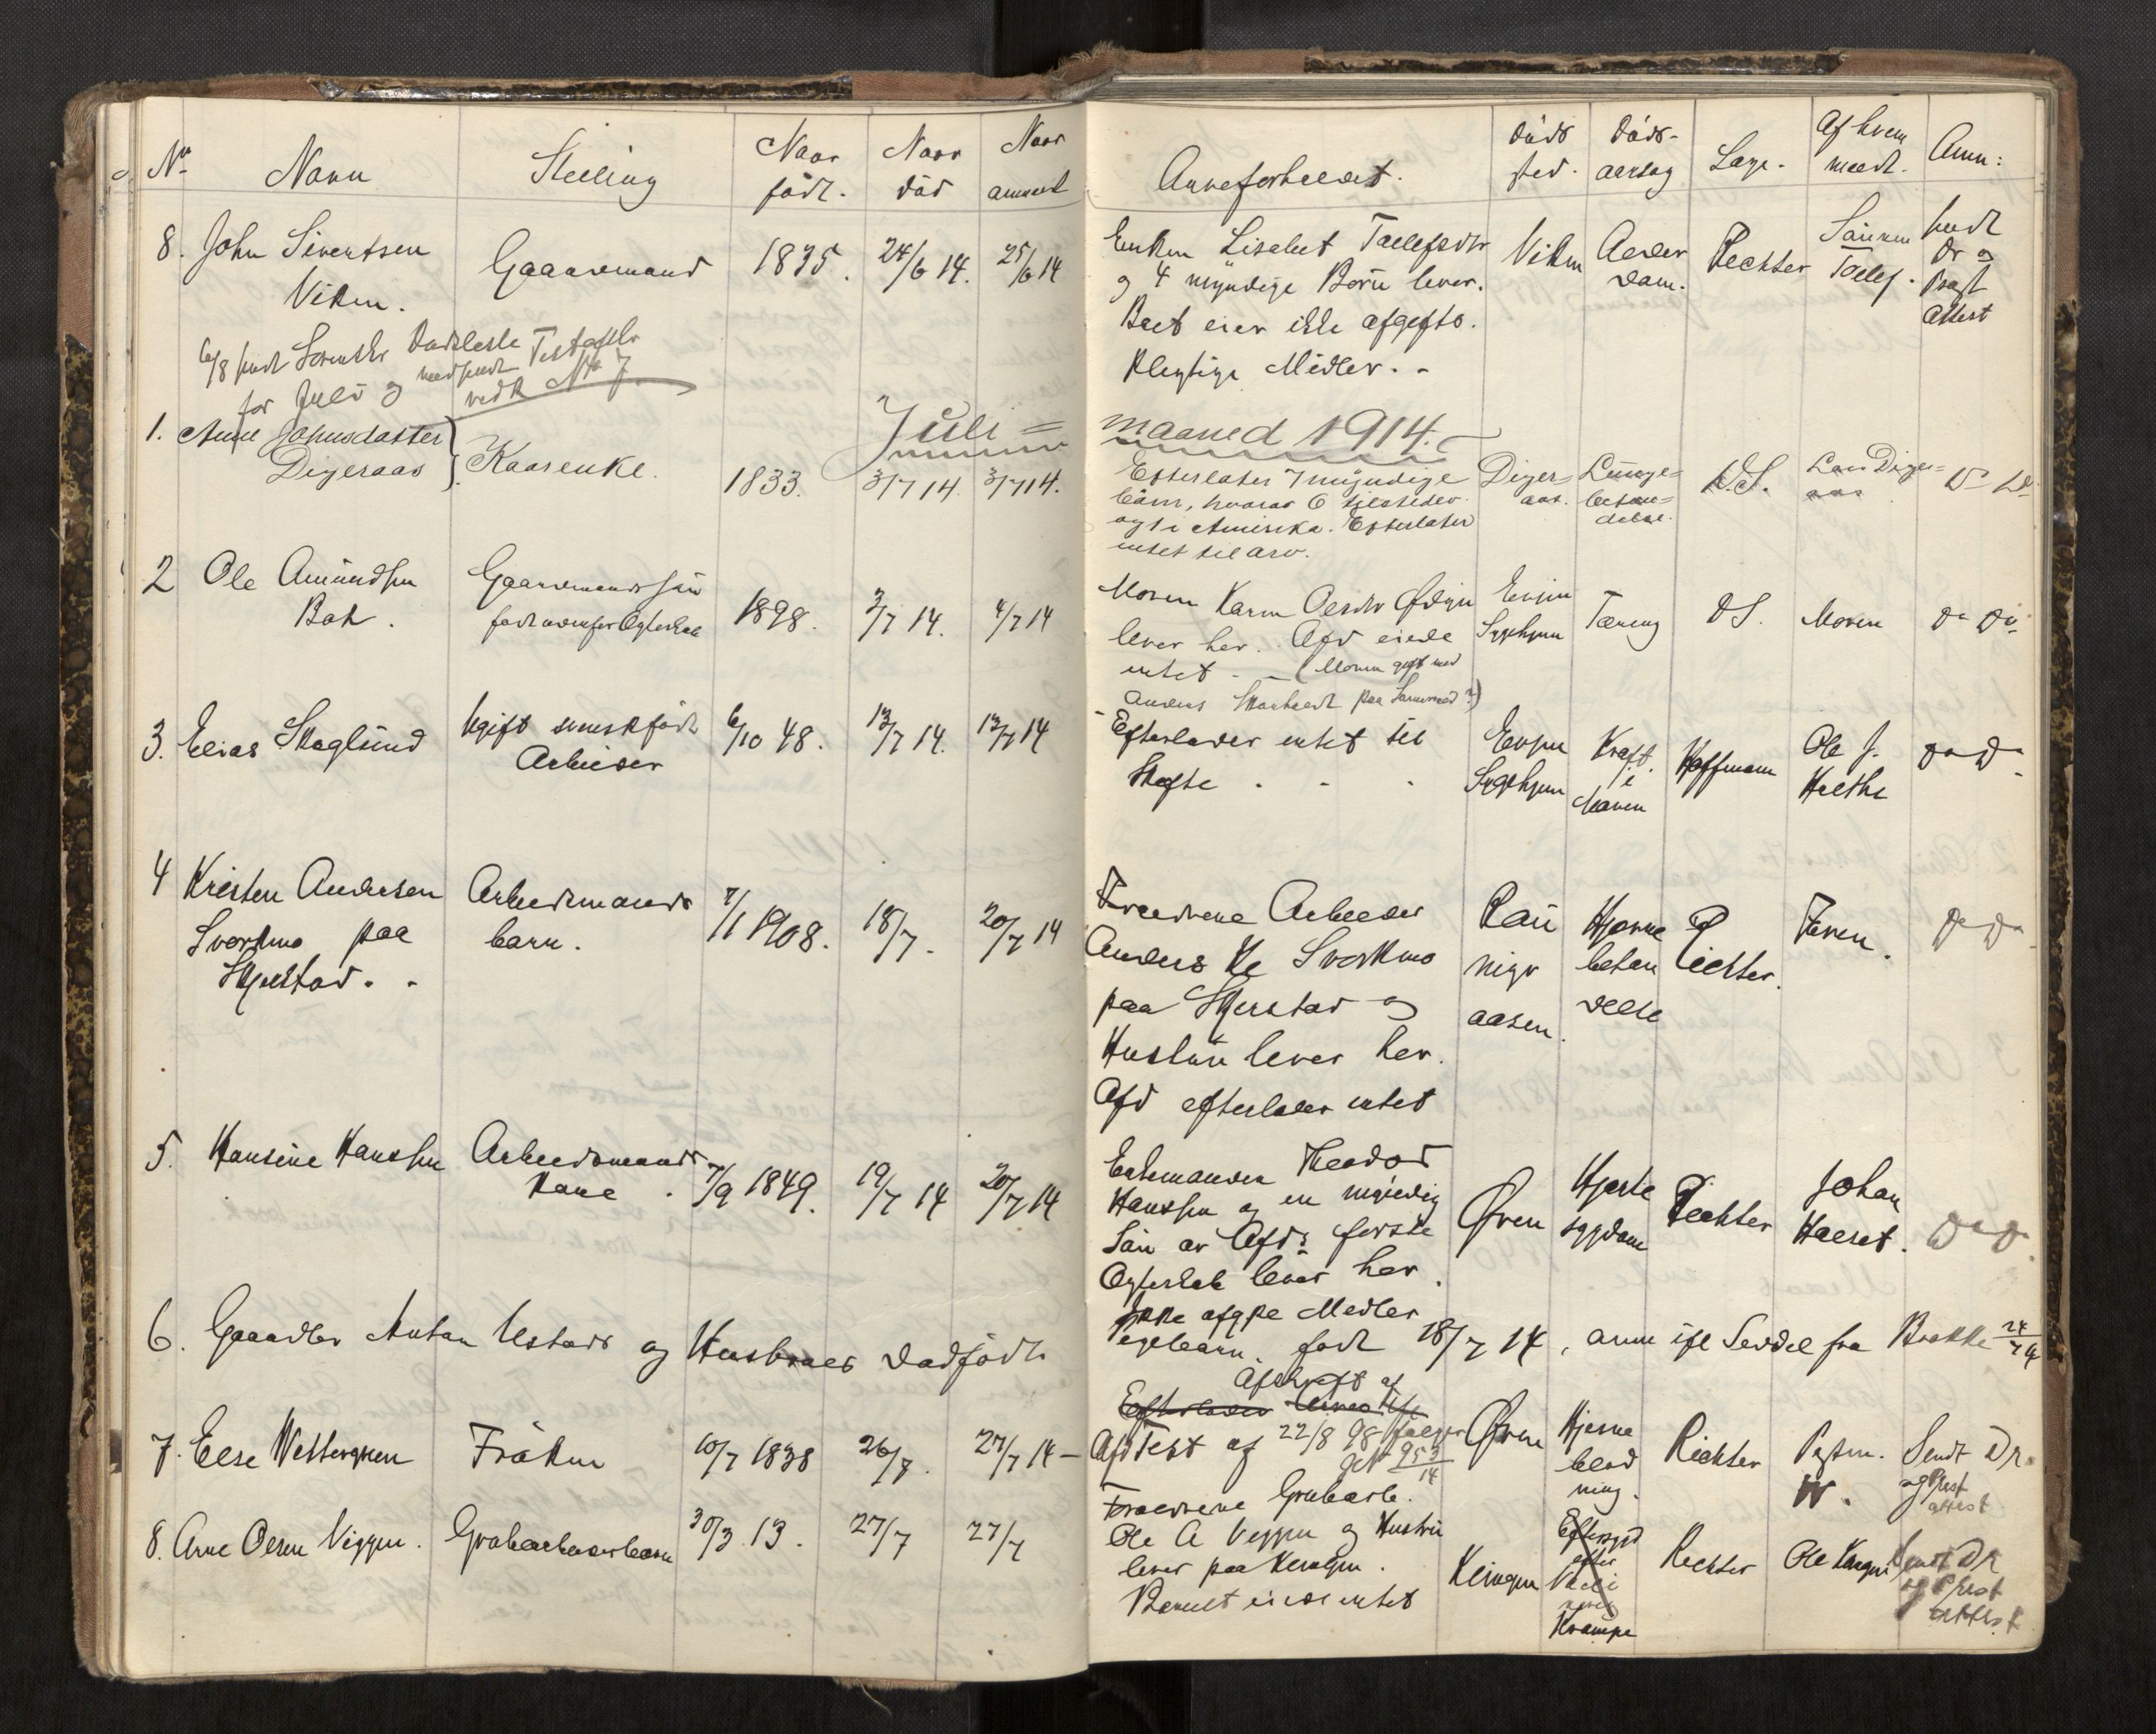 No
Navn
Stilling
Naar
født.
Naar
død
Naar
anmeldt
Arveforholdet.
Døds
sted.
Døds-
aarsag
Læge.
Af hvem
meldt.
Anm:
8. John Sivertsen
Viken.
Gaardmand
1835.
24/6 14.
25/6 14
Enken Lisabet Toelefsdtr
og 4 myndige Børn lever.
Boet eier ikke afgifts-
pligtige Midler. -
Viken
Alder
dom.
Richter
Sønnen
Toelef.
sendt
Dr og
Prest
Attest
6/8 sendt Sorenskr Dødsliste
for Juli og nedsendt Testaftr
vedk No 7
Juli =
maaned 1914.
1. Anne Johnsdatter
Digeraas
Kaarenke.
1833.
3/7 14.
3/7 14.
Efterlater 7 myndige
børn, hvorav 6 tilsteder
og 1 i Amerika. Efterlater
intet til arv.
Diger=
aas.
Lunge=
betæn=
delse.
D.S.
Lars Diger=
aas
Do Do
2 Ole Amundsen
Bak.
Gaardmands søn
født udenfor Ægteskab
1898.
3/7 14.
4/7 14
Moren Karen Olsdtr
lever her. Afd eiede
intet - (Moren gift med
Anders paa
Sygehjem
Tæring
DS.
Moren
Do Do
3. Elias Skaglund
Ugift svenskfødt
Arbeider
6/10 48.
13/7 14.
13/7 14
Efterlader intet til
Skifte - - -
Sygehjem
Kræft
i
Maven
Hoffmann
Ole J.
Do Do
4 Kristen Andersen
Svorkmo paa
Skjelstad. -
Arbeidsmands
barn.
7/1 1908.
18/7.
20/7 14
Forældrene Arbeider
Anders Ke Svorkmo
paa Skjerstad og
Hustru lever her.
Afd efterlader intet
Røn
nigs
aasen.
Hjerne
betæn
delse
Richter.
Faren.
Do Do
5. Hansine Hanssen
Arbeidsmands
Kone.
7/9 1849.
19/7 14
20/7 14
Enkemanden Theodor
Hanssen og en myndig
Søn av Afds første
Ægteskab lever her.
Ikke afgpl Midler
Øren
Hjerte
sygdom
Richter
Johan
Do Do
6. Gaardbr Anton Ustad og Hustrues dødfødte
egtebarn født 18/7 14, anm ifl Seddel fra Bakke 24/7 14
7. Else Westergren
Frøken
10/7 1838
26/7.
27/7 14 -
Afskrift af
Efterlader
Afd Test af 22/8 98 følger
953/14
Øren
Hjerne
blød
ning.
Richter
Pastm.
W.
Sendt Dr.
og Prest
attest
8. Arne Olsen Viggen.
Grubearbeiderbarn
30/3 13.
27/7
27/7
Forældrene Grubearb.
Ole A Viggen og Hustru
lever paa
Barnet eiede intet
Eftersyd
efter
Krampe
Richter
Ole
sendt Dr
og Prest
attest